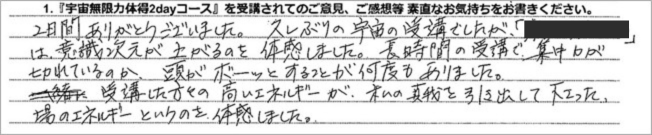 1.『宇宙無限力体得2dayコース』を受講されてのご意見、ご感想等 素直なお気持をお書きください。
2日間ありがとうございました。久しぶりの宇宙の受講でしたが、「
は、意識次元が上がるのを体感しました。長時間の受講で集中力が
切れているのか、頭がボーッとすることが何度もありました。
受講した方々の高いエネルギーが、私の真我を引き出して下さった、
場のエネルギーというのを、体感しました。